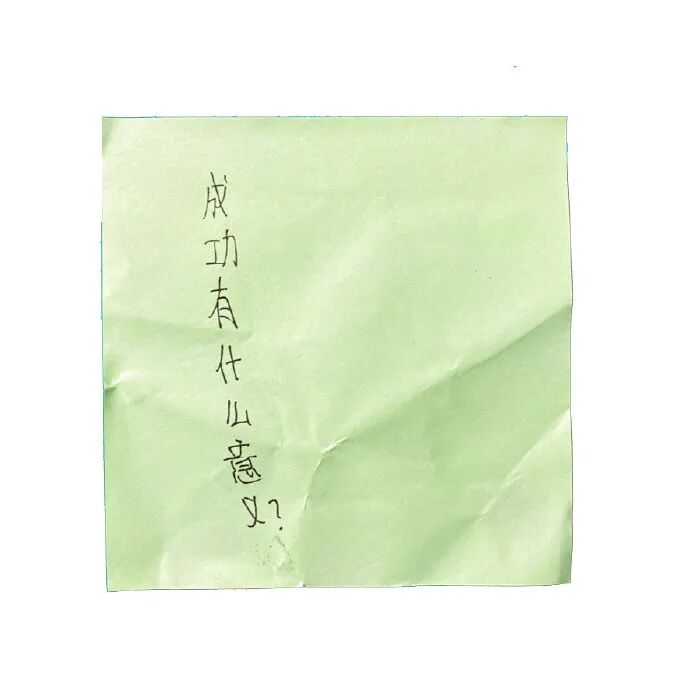 成功有什么意义?